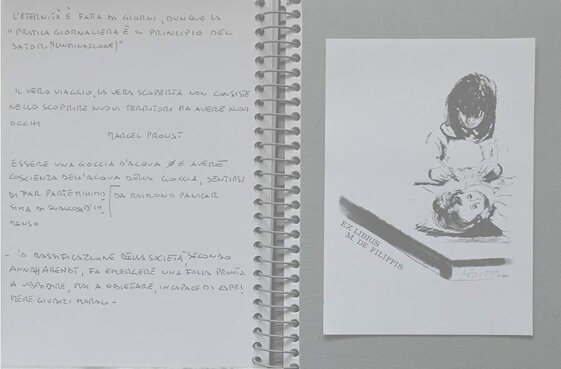 L'ETERNITÀ È FATTA DI GIORNI, DUNQUE LA
"PRATICA GIORNALIERA È IL PRINCIPIO DEL
SATORI (ILLUMINAZIONE)"
IL VERO VIAGGIO, LA VERA SCOPERTA NON CONSISTE
NELLO SCOPRIRE NUOVI TERRITORI MA AVERE NUOVI
OCCHI
MARCEL PROUST
ESSERE UNA GOCCIA D'ACQUA O È AVERE
COSCIENZA DELL'ACQUA DELLA GOCCIA, SENTIRSI
DI FAR PARTE MINIMIS DA RAIMONDO PANICAR
SIMA DI QUALCOSA D'IM
MENSO
- LA MASSIFICAZIONE DELLA SOCIETÀ, SECONDO
ANNAH ARENDT, FA EMERGERE UNA FOLLA PRONTA
A UBBIDIRE, MAI A OBIETTARE, INCAPACE DI ESPRI
MERE GIUDIZI MORALI -
EX LIBRIS
M. DE FILIPPIS